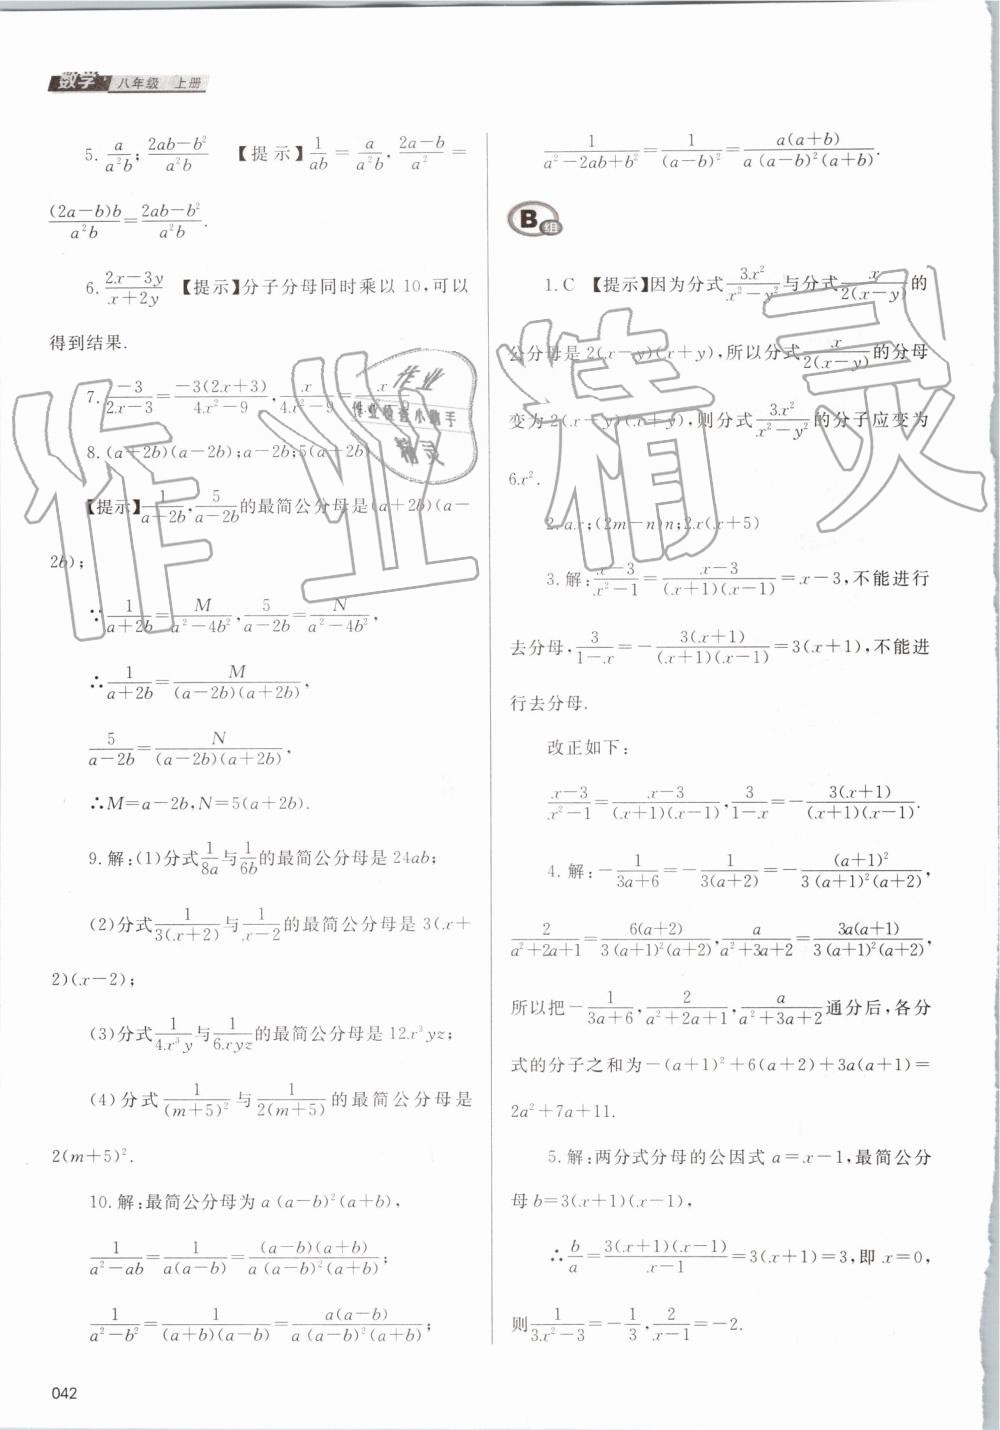 数学 八年级 上册
5. a/(a²b); (2ab-b²)/(a²b) 【提示】1/(ab) = a/(a²b), (2a-b)/a² =
(2a-b)b/(a²b) = (2ab-b²)/(a²b).
6. (2x-3y)/(x+2y) 【提示】分子分母同时乘以10,可以
得到结果.
7. -3/(2x-3) = -3(2x+3)/(4x²-9), x/(4x²-9) = x
8. (a+2b)(a-2b);a-2b;5(a+2b)
【提示】1/(a+2b), 5/(a-2b)的最简公分母是(a+2b)(a-
2b);
∵1/(a+2b) = M/(a²-4b²), 5/(a-2b) = N/(a²-4b²),
∴1/(a+2b) = M/((a-2b)(a+2b)),
5/(a-2b) = N/((a-2b)(a+2b)),
∴M=a-2b,N=5(a+2b).
9.解:(1)分式1/(8a)与1/(6b)的最简公分母是24ab;
(2)分式1/(3(x+2))与1/(x-2)的最简公分母是3(x+
2)(x-2);
(3)分式1/(4x³y)与1/(6xyz)的最简公分母是12x³yz;
(4)分式1/(m+5)²与1/(2(m+5))的最简公分母是
2(m+5)².
10.解:最简公分母为a(a-b)²(a+b),
1/(a²-ab) = 1/(a(a-b)) = (a-b)(a+b)/(a(a-b)²(a+b));
1/(a²-b²) = 1/((a+b)(a-b)) = a(a-b)/(a(a-b)²(a+b));
042
1/(a²-2ab+b²) = 1/(a-b)² = a(a+b)/(a(a-b)²(a+b)).
B组
1.C 【提示】因为分式3x²/(x²-y²)与分式x/(2(x-y))的
公分母是2(x-y)(x+y),所以分式x/(2(x-y))的分母
变为2(x-y)(x+y),则分式3x²/(x²-y²)的分子应变为
6x².
2.ax;(2m-n)n;2x(x+5)
3.解:(x-3)/(x²-1) = (x-3)/((x+1)(x-1)) = x-3,不能进行
去分母,3/(1-x) = -3(x+1)/((x+1)(x-1)) = 3(x+1),不能进
行去分母.
改正如下:
(x-3)/(x²-1) = (x-3)/((x+1)(x-1)), 3/(1-x) = -3(x+1)/((x+1)(x-1)).
4.解:-1/(3a+6) = -1/(3(a+2)) = -(a+1)²/(3(a+1)²(a+2)),
2/(a²+2a+1) = 6(a+2)/(3(a+1)²(a+2)), a/(a²+3a+2) = 3a(a+1)/(3(a+1)²(a+2)),
所以把-1/(3a+6), 2/(a²+2a+1), a/(a²+3a+2)通分后,各分
式的分子之和为-(a+1)²+6(a+2)+3a(a+1)=
2a²+7a+11.
5.解:两分式分母的公因式a=x-1,最简公分
母b=3(x+1)(x-1),
∴b/a = 3(x+1)(x-1)/(x-1) = 3(x+1)=3,即x=0,
则1/(3x²-3) = -1/3, 2/(x-1) = -2.
作业精灵
作业
作业检查小助手
精灵